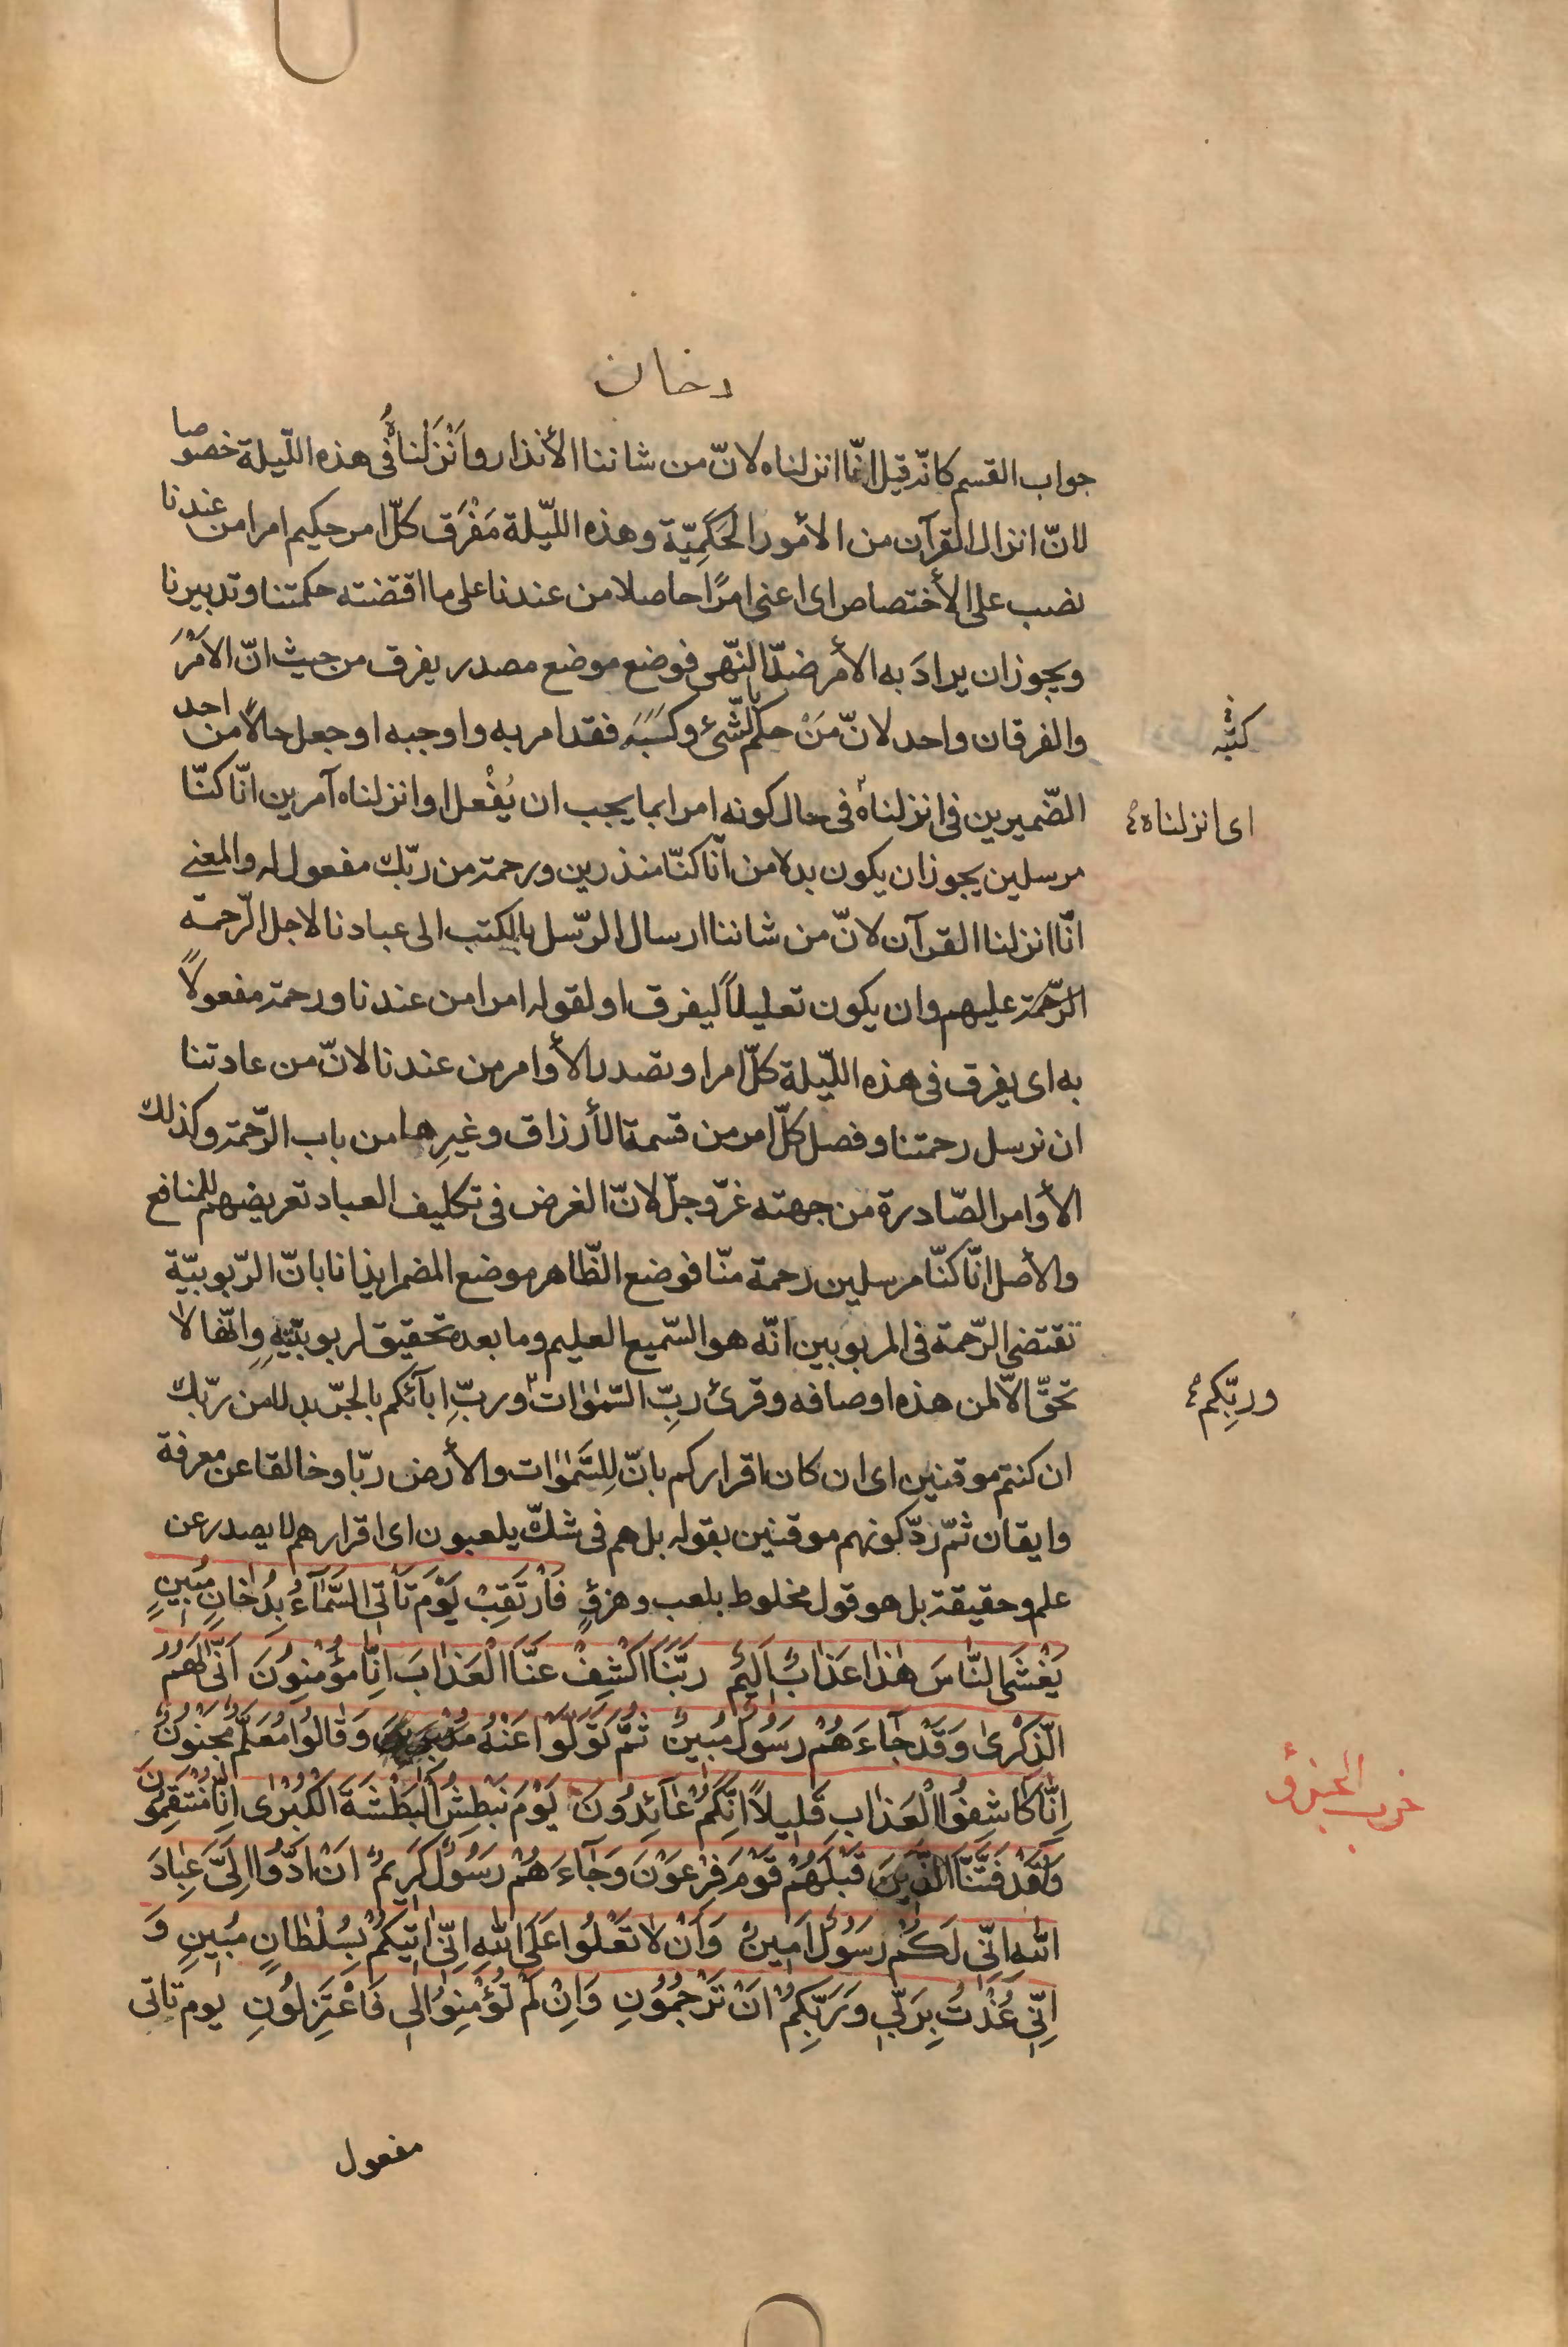 دخان
جواب القسم كانّه قيل انّا انزلناه لانّ من شاننا الأنذار وَأنْزَلْناهُ فى هذه اللّيلة خصوصا
لانّ انزال القرآن من الأمور الحَكَمِيّة وهذه اللّيلة مَفْرَق كلّ امر حكيم امرا من عندنا
نصب على الأختصاص اى اعنى امرًا حاصلا من عندنا على ما اقتضته حكمتنا وتدبيرنا
ويجوز ان يرادَ به الأمر ضدّ النّهى فوضع موضع مصدر يفرق من حيث انّ الاَمْرَ
والفرقان واحد لانّ مَنْ حكم بالشّىء وكَتَبَه فقد امر به واوجبه او جعل حالاً من احد
الضّميرين فى انزلناه فى حال كونه امرا بما يجب ان يُفْعل او انزلناه آمرين انّا كنّا
مرسلين يجوز ان يكون بدلا من انّا كنّا منذرين ورحمة من ربّك مفعول له والمعنى
انّا انزلنا القرآن لانّ من شاننا ارسال الرّسل بالكتب الى عبادنا لاجل الرّحمة
الرّحمة عليهم وان يكون تعليلاً ليفرق او لقوله امرا من عندنا ورحمة مفعولاً
به اى يفرق فى هذه اللّيلة كلّ امر او تصدر الأوامر من عندنا لانّ من عادتنا
ان نرسل رحمتنا وفصل كلّ امر من قسمة الأرزاق وغيرِها من باب الرّحمة وكذلك
الأوامر الصّادرة من جهته عزّ وجلّ لانّ الغرض فى تكليف العباد تعريضهم للمنافع
والأصل انّا كنّا مرسلين رحمة منّا فوضع الظّاهر موضع المضمر ايذانا بانّ الرّبوبيّة
تقتضى الرّحمة فى المربوبين انّه هو السّميع العليم وما بعده تحقيق لربوبيّتِهِ وانّها لا
تحقّ الاّ لمن هذه اوصافه وقرئ ربِّ السّمٰوٰات وربِّ ابآئكم بالجرّ بدلا من ربّك
ان كنتم موقنين اى ان كان اقراركم بانّ لِلسَّمٰوٰات والأرض ربّا وخالقا عن معرفة
وايقان ثمّ ردّ كونهم موقنين بقوله بل هم فى شكّ يلعبون اى اقرارهم لا يصدر عن
علم وحقيقة بل هو قول مخلوط بلعب وهزؤٍ فَارْتَقِبْ يَوْمَ تَأتِى السَّمٰآءُ بِدُخٰانٍ مُبٖينٍ
يَغْشَى النّٰاسَ هٰذٰا عَذٰابٌ اَلٖيمٌ رَبَّنَا اكْشِفْ عَنَّا الْعَذٰابَ اِنّٰا مُؤْمِنُونَ اَنّٰى لَهُمُ
الذِّكْرىٰ وَقَدْ جٰآءَهُمْ رَسُولٌ مُبٖينٌ ثُمَّ تَوَلَّوْا عَنْهُ وَقٰالُوا مُعَلَّمٌ مَجْنُونٌ
اِنّٰا كٰاشِفُوا الْعَذٰابِ قَلٖيلاً اِنَّكُمْ عٰآئِدُونَ يَوْمَ نَبْطِشُ الْبَطْشَةَ الْكُبْرٰى اِنّٰا مُنْتَقِمُونَ
وَلَقَدْ فَتَنّٰا قَبْلَهُمْ قَوْمَ فِرْعَوْنَ وَجٰآءَهُمْ رَسُولٌ كَرٖيمٌ اَنْ اَدُّوا اِلَىَّ عِبٰادَ
اللهِ اِنّٖى لَكُمْ رَسُولٌ اَمٖينٌ وَاَنْ لاٰ تَعْلُوا عَلَى اللهِ اِنّٖى اٰتٖيكُمْ بِسُلْطٰانٍ مُبٖينٍ وَ
اِنّٖى عُذْتُ بِرَبّٖى وَرَبِّكُمْ اَنْ تَرْجُمُونِ وَاِنْ لَمْ تُؤْمِنُوا لٖى فَاعْتَزِلُونِ يوم تاتى
مفعول
كتبه
اى انزلناه
وربِّكم
حزب الجزؤ